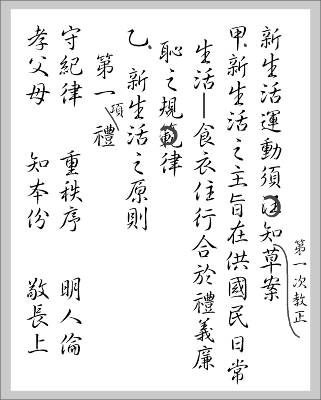 新生活運動須知草案
第一次教正
甲、新生活之主旨在供國民日常
生活—食衣住行合於禮義廉
恥之規律
乙、新生活之原則
第一項禮
守紀律　重秩序　明人倫
孝父母　知本份　敬長上